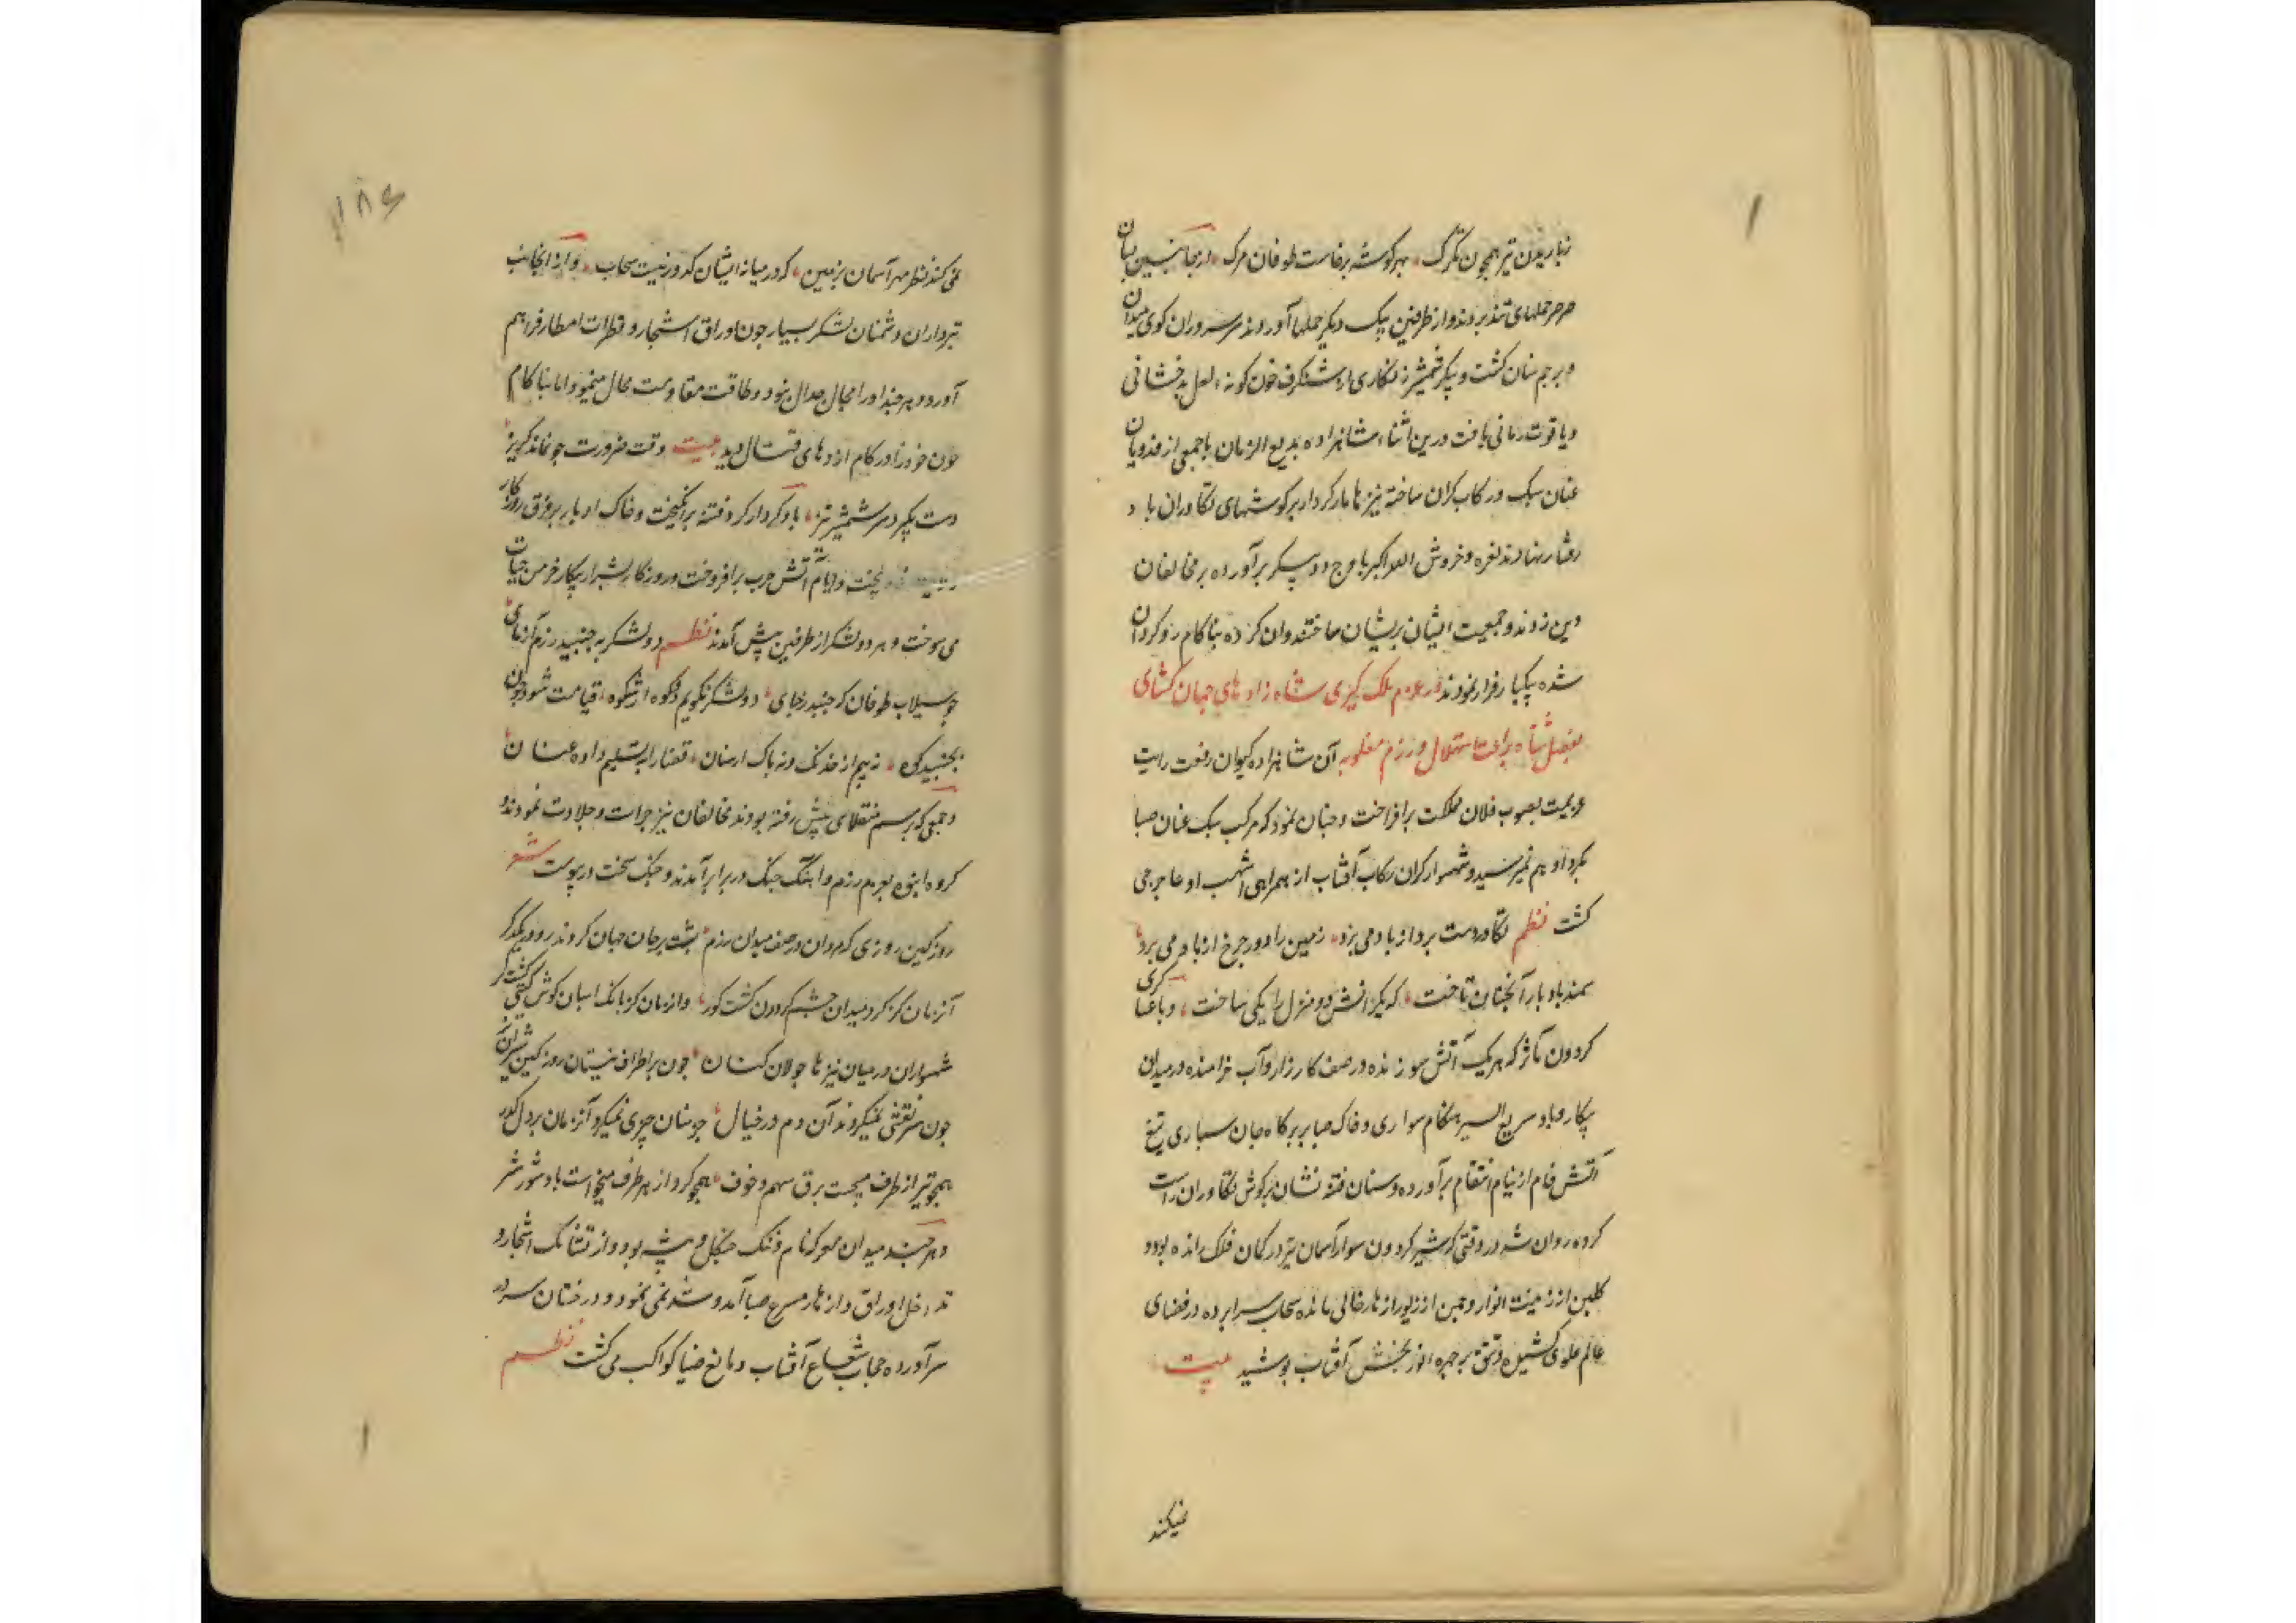 زباریدن تیر همچون تگرگ بهر گوشه برخاست طوفان مرگ از جانبین بسان
صرصر حملهای تند بردند و از طرفین بیک دیگر حملها آوردند سر سروران گوی میدان
و پرچم سنان گشت و پیکر شمشیر زنگاری از شنگرف خون گونه لعل بدخشانی
و یاقوت رمانی یافت درین اثناء شاهزاده بدیع الزمان با جمعی از فدویان
عنان سبک و رکاب گران ساخته نیزها مار کردار بر گوشهای تکاوران باد
رفتار نهادند نعره و خروش الله اکبر باوج دو پیکر برآورده بر مخالفان
دین زدند و جمعیت ایشان پریشان ساختند و آن گروه بناکام روگردان
شده یکبار فرار نمودند در عزم ملک گیری شاه زاد های جهان گشای
براعت استهلال و رزم مغلوبه آن شاهزاده کیوان رفعت رایت
عزیمت بصوب فلان مملکت برافراخت و چنان نمود که مرکب سبک عنان صبا
بگرد او هم نمیرسید و شهسوار گران رکاب آفتاب از همراهی اشهب او عاجز می
گشت نظم تکاور دست برد از باد می برد زمین را دور چرخ از یاد می برد
سمند باد پا را آنچنان تاخت که یکرانش دو منزل را یکی ساخت و با عساکری
گردون مآثر که هر یک آتش سوزنده در صف کارزار و آب خرامنده در میدان
پیکار و باد سریع السیر هنگام سواری و خاک صابر بر گاه جان سپاری تیغ
آتش فام از نیام انتقام برآورده و سنان فتنه نشان بر گوش تکاوران راست
کرده روان شد در وقتی که شیر گردون سوار آسمان تیر در کمان فلک رانده بود و
گلبن از زینت انوار و چمن از زیور ازهار خالی مانده سحاب سراپرده در فضای
عالم علوی کشیده و تتق بر چهره انور بخش آفتاب پوشید بیت
نمیکند
نمی کند نظر مهر آسمان بزمین که در میانه ایشان کدورتیست سحاب و از آنجانب
تیرداران دشمنان لشکر بسیار چون اوراق اشجار و قطرات امطار فراهم
آورد و هر چند او را مجال جدال نبود و طاقت مقاومت محال مینمود اما بناکام
چون خود را در کام اژدهای قتال دید بیت وقت ضرورت چو نماند گریز
دست بگیرد سر شمشیر تیز باد کردار گرد فتنه برانگیخت و خاک ادبار بر فرق روزگار
بیخت و ایام آتش حرب برافروخت و روزگار بشرار پیکار خرمن حیات
می سوخت و هر دو لشکر از طرفین پیش آمدند نظم دو لشکر بجنبید رزم آزمای
چو سیلاب طوفان که جنبد ز جای دو لشکر نگویم دو کوه از شکوه قیامت شود چون
بجنبید کوه نه بیم از خدنگ و نه باک از سنان قضا را بتسلیم داده عنان
و جمعی که برسم منقلای پیش رفته بودند مخالفان نیز جرات و جلادت نمودند و
گروه انبوه بعزم رزم و آهنگ جنگ در برابر آمدند و جنگ سخت در پیوست شعر
روز کین روزی که مردان در صف میدان رزم پشت بر جان جهان کردند رو در یکدگر
آنزمان کز گرد میدان چشم گردون گشت کور و انزمان کز بانک اسبان گوش گیتی گشت کر
شهسواران در میان نیزها جولان کنان چون بر اطراف نیستان روز کین شیران نر
چون سر نقشی نمیکردند آن دم در خیال جز سنان چیزی نمیکرد آنزمان بر دل گذر
همچو تیر از طرف میجست برق سهم و خوف همچو گرد از هر طرف میخواست باد شور و شر
و هر چند میدان معرکه نام و ننگ جنگل و بیشه بود و از تشابک اشجار و
تداخل اوراق و ازهار مسرع صبا آمد و شد نمی نمود و درختان سر در
سر آورده حجاب شعاع آفتاب و مانع ضیا کواکب می گشت نظم